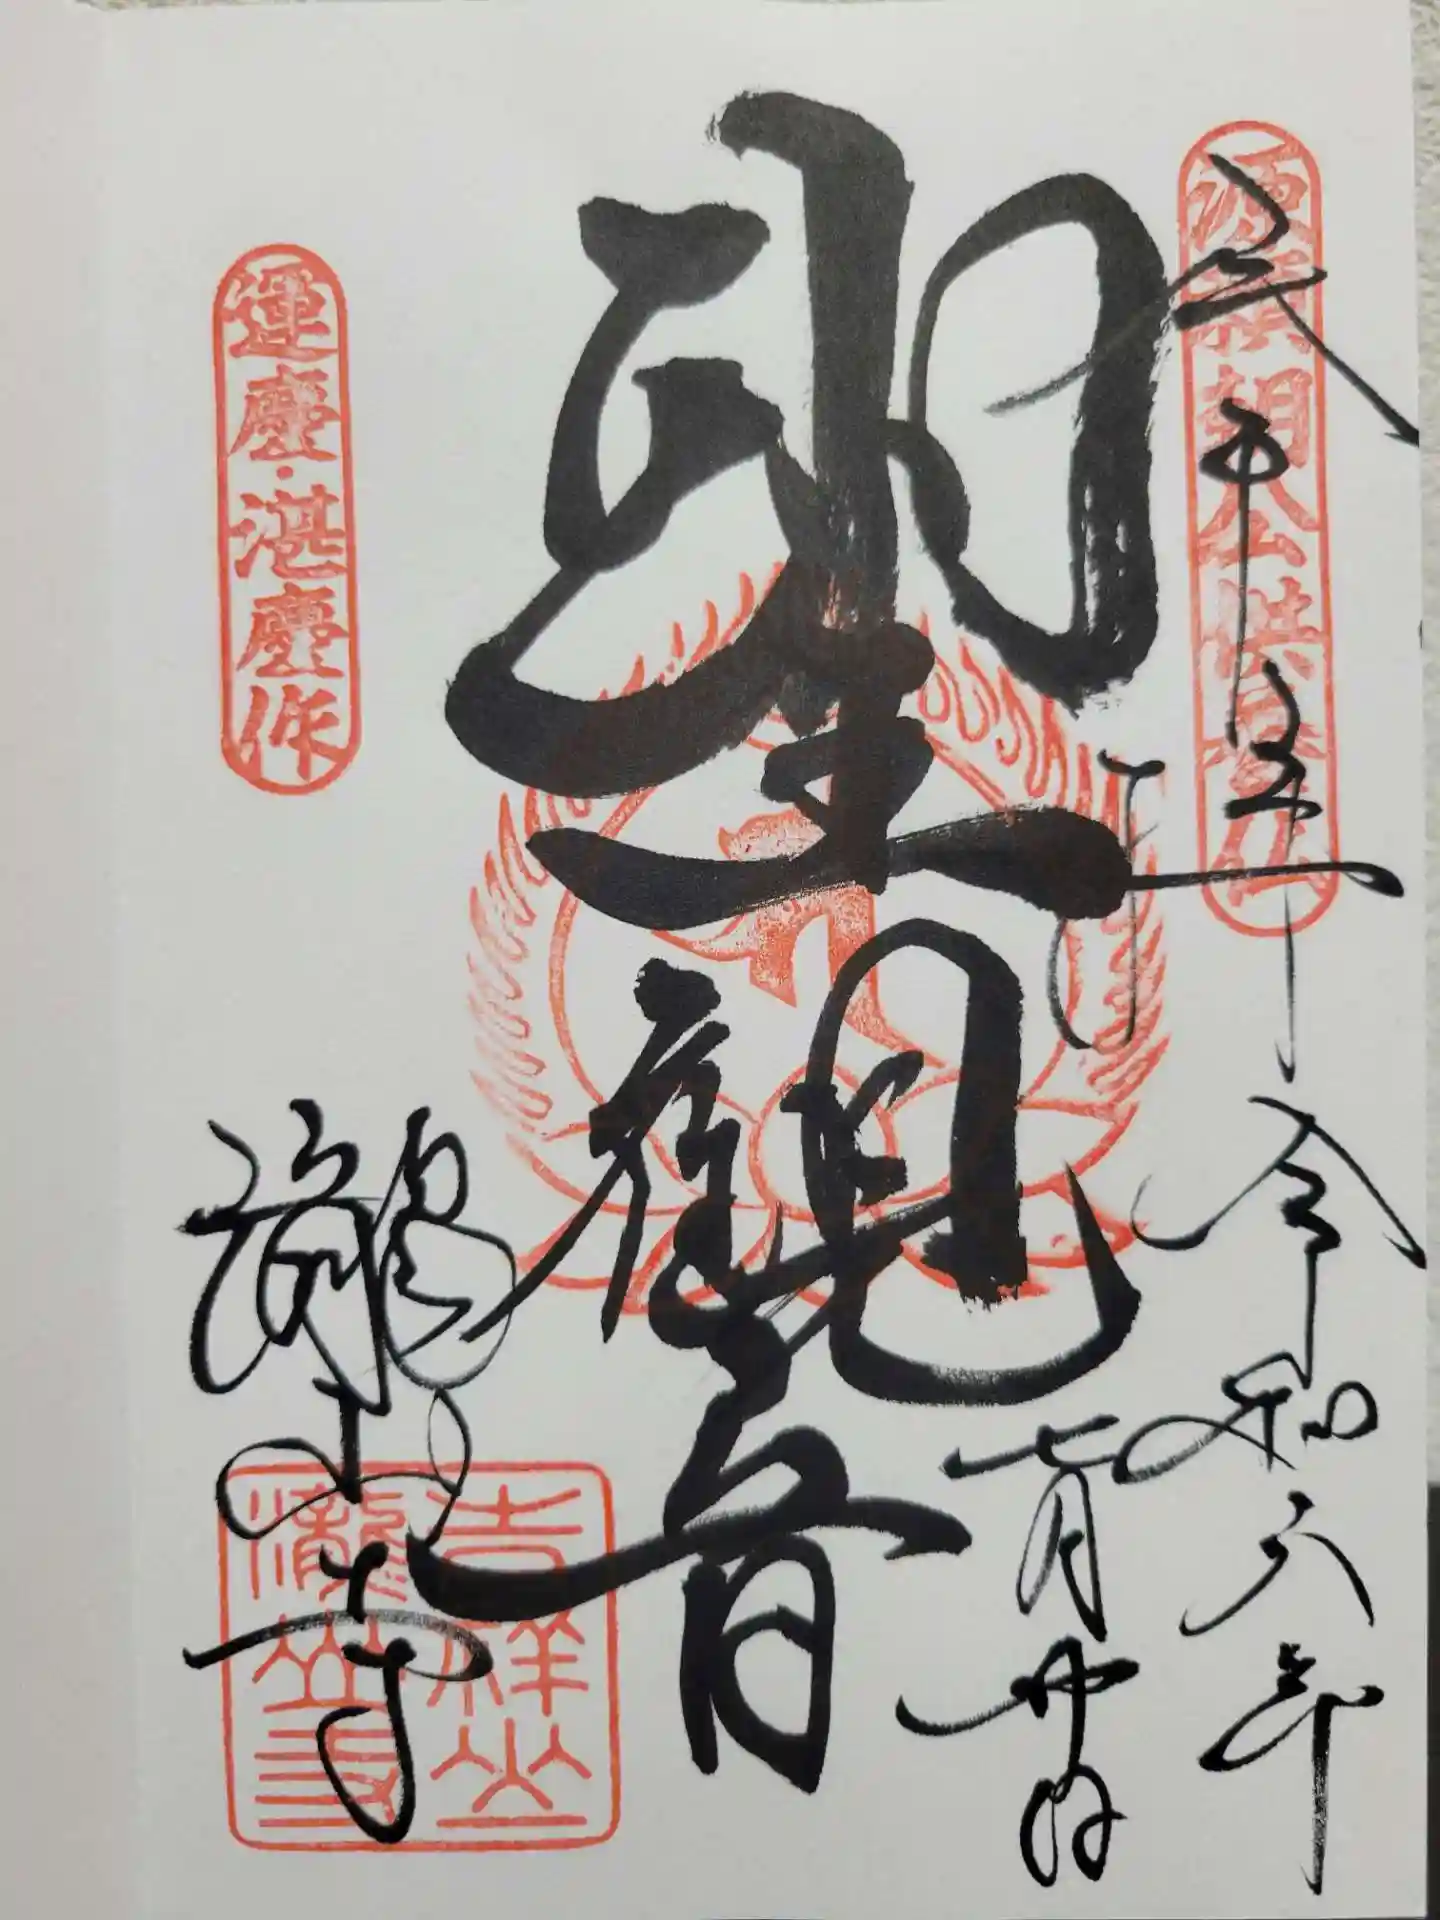 源頼朝公供養仏
令和六年
七月廿日
聖觀音
運慶・湛慶作
瀧山寺
吉祥山
瀧山寺